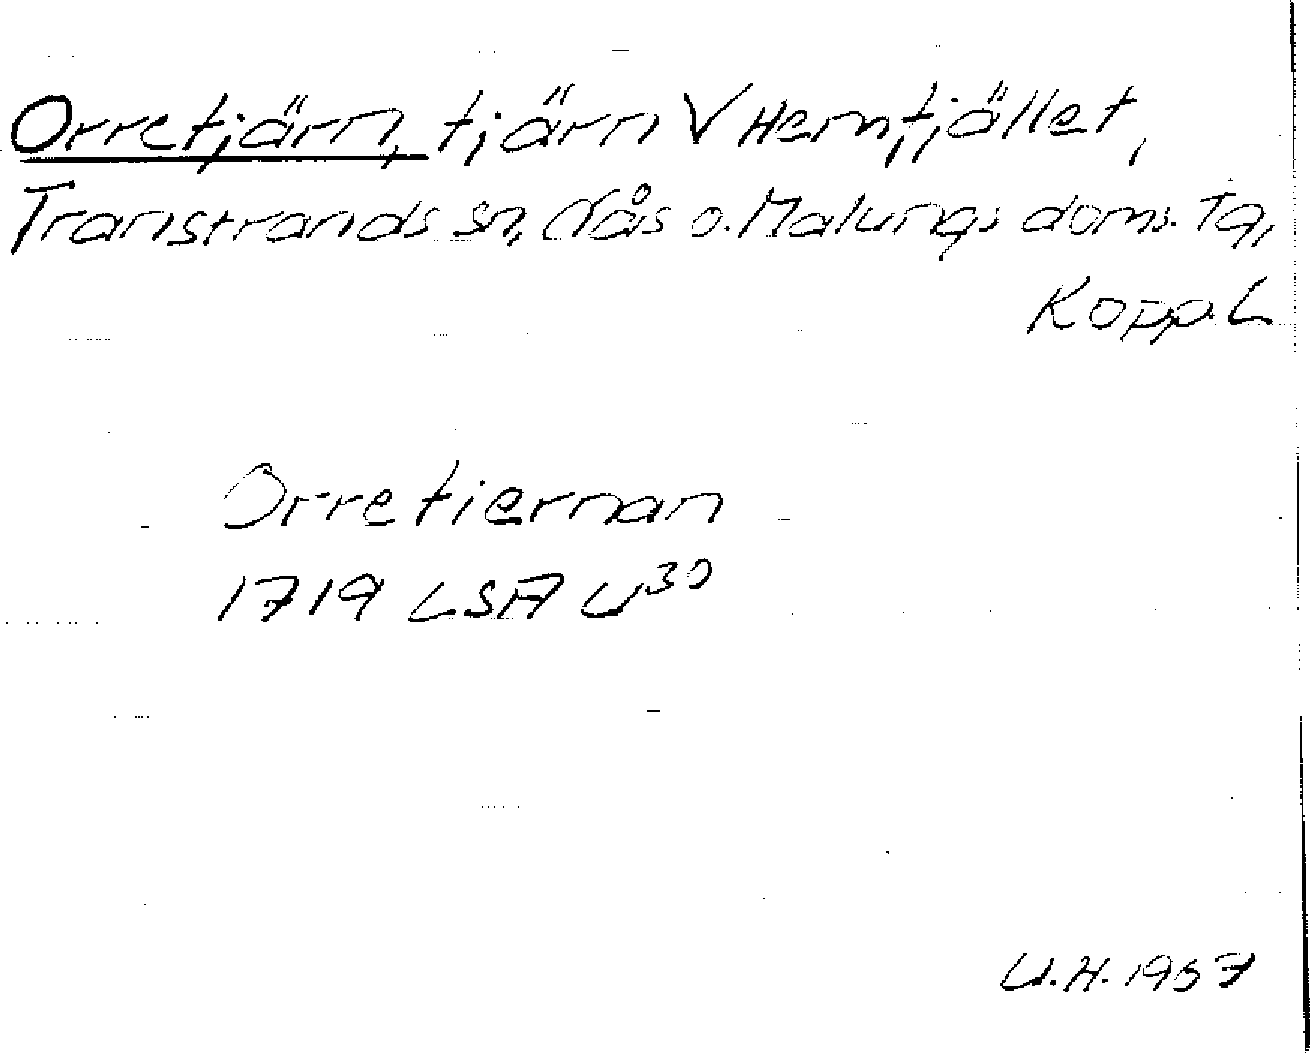 Orretjärn, tjärn V Hemfjället,
Transtrands sn, Nås o. Malungs doms. Tg,
Kopp. L
Orretiernan
1719 LSA U30
U.H. 1957